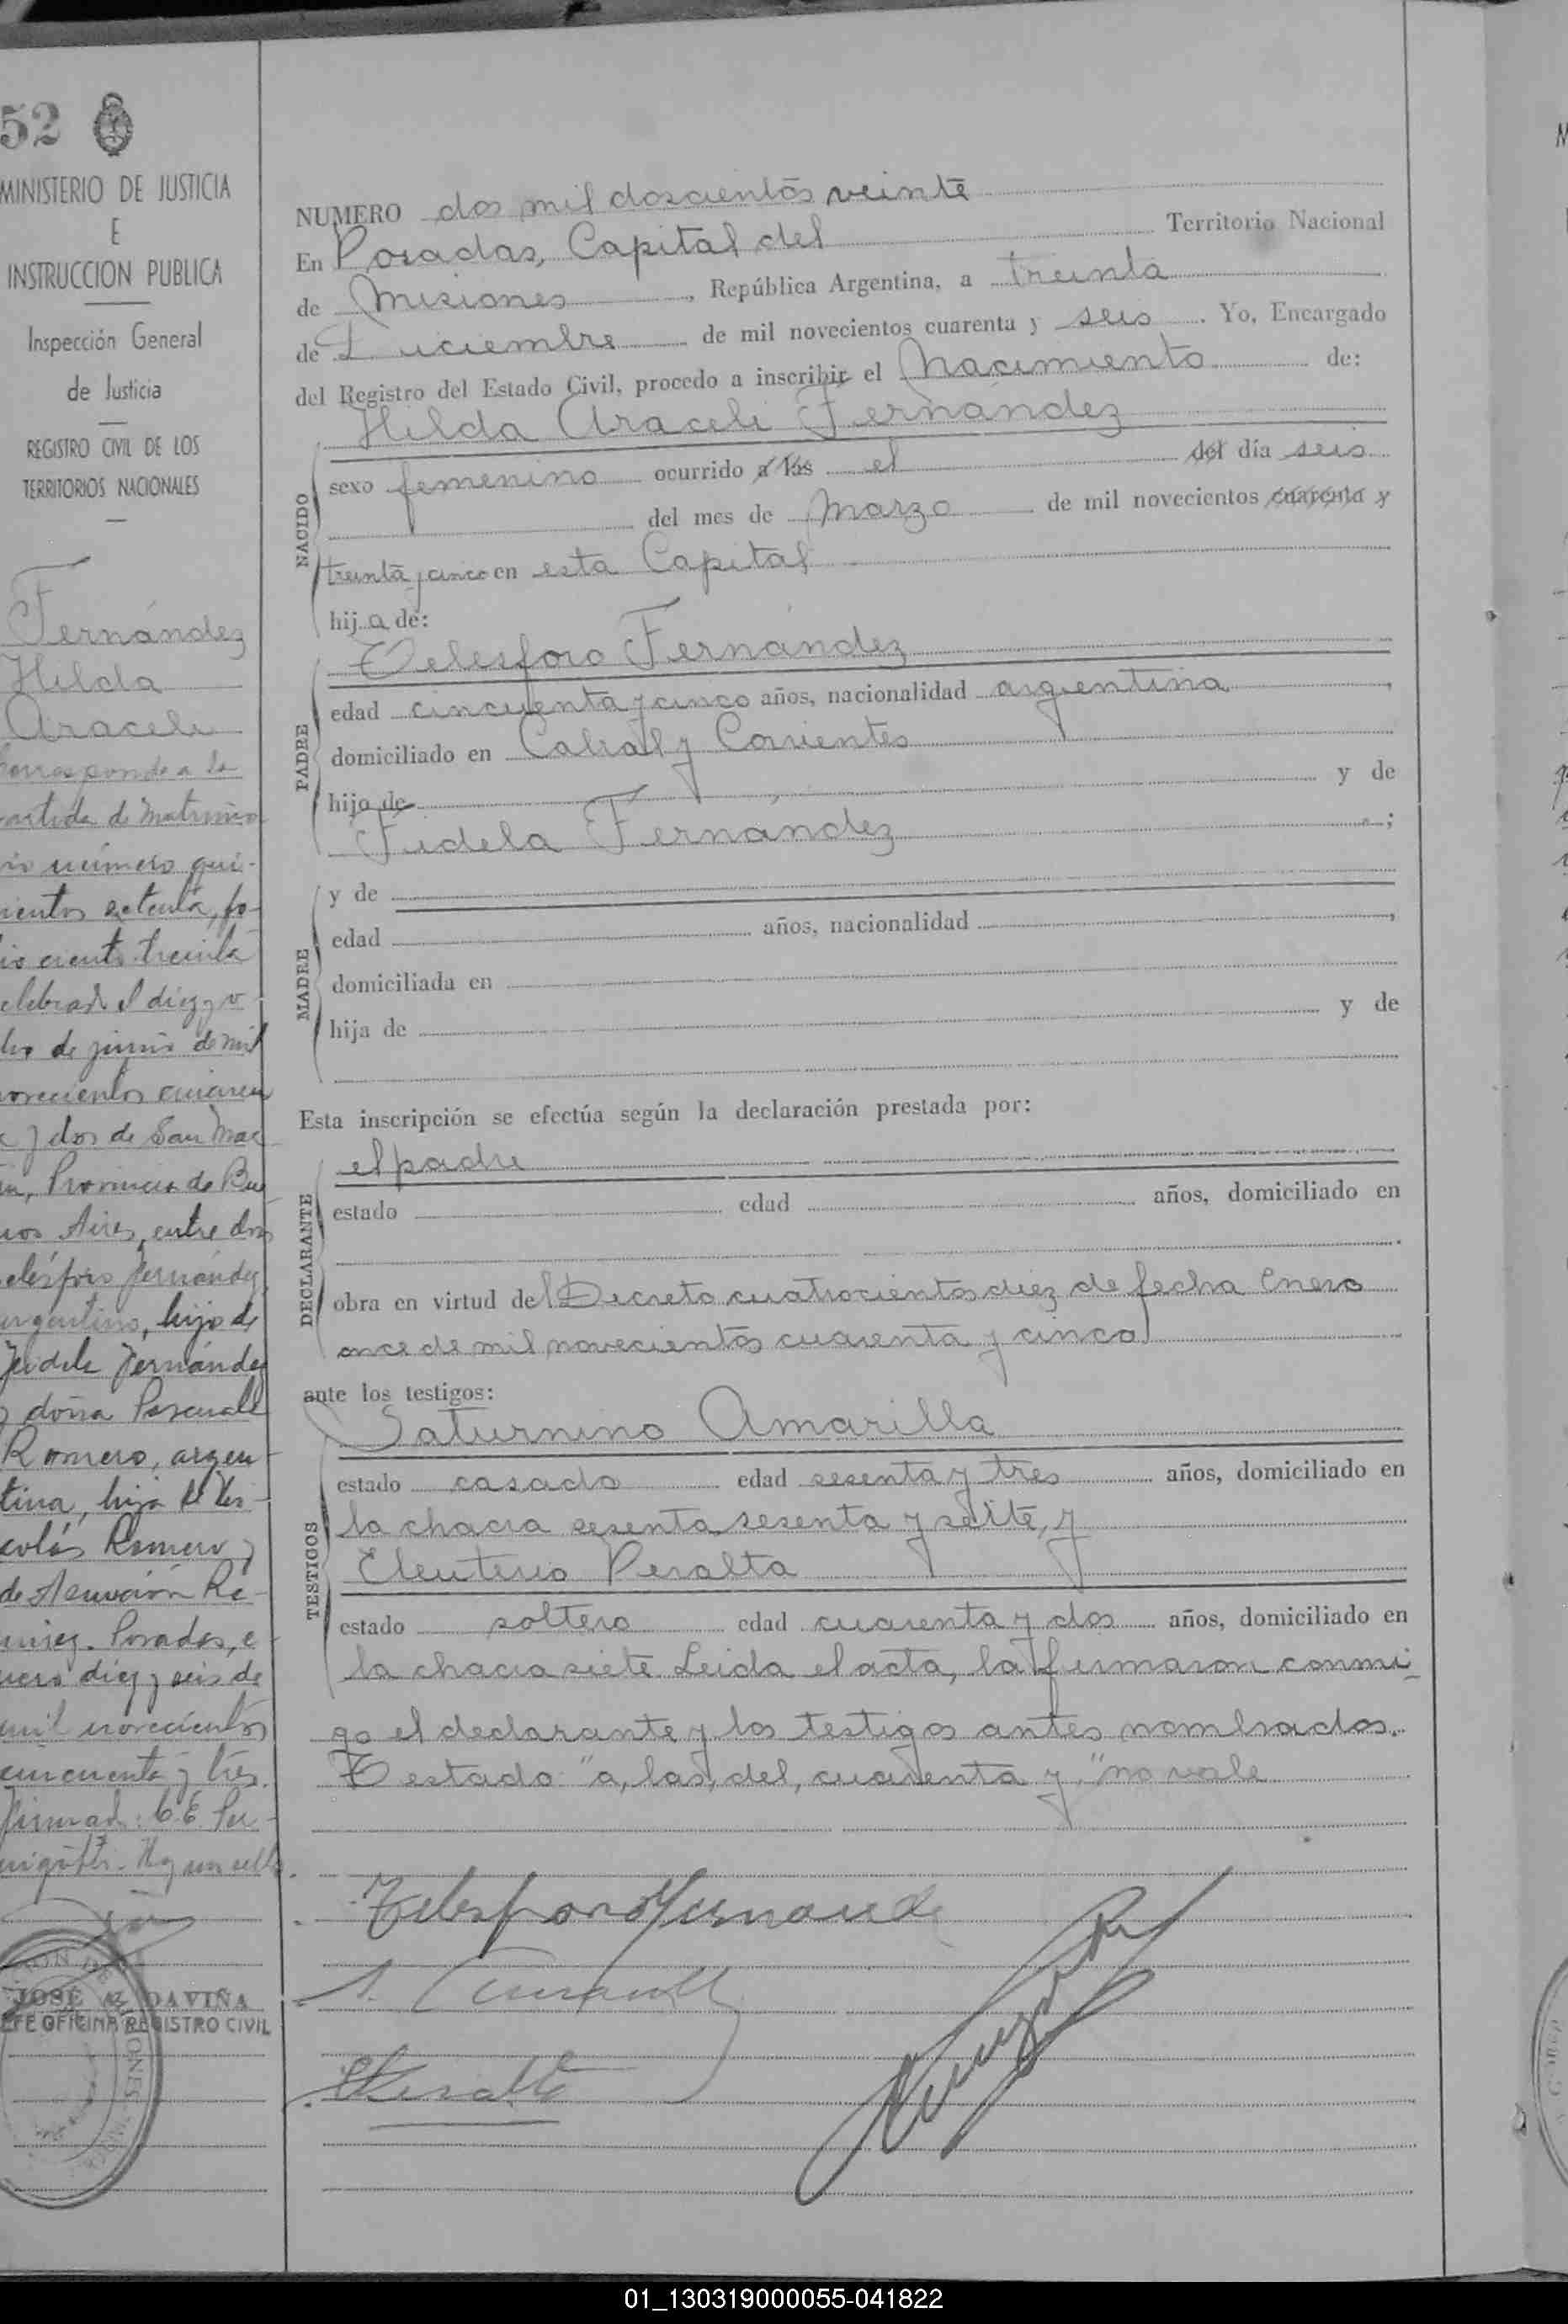 52
MINISTERIO DE JUSTICIA
E
INSTRUCCION PUBLICA
Inspección General
de Justicia
REGISTRO CIVIL DE LOS
TERRITORIOS NACIONALES
Fernández
Hilda
Araceli
Corresponde a la
partida de matrimo
nio número qui-
nientos setenta, fo-
lio ciento treinta
celebrado el diez y o
cho de junio de mil
novecientos cuaren
ta y dos de San Mar
tin, Provincia de Bue
nos Aires, entre don
Telésforo Fernández
argentino, hijo de
Fidela Fernández
y doña Pascuala
Romero, argen-
tina, hija de Ni-
colás Romero y
de Asunción Ra-
mirez. Posadas, e-
nero diez y seis de
mil novecientos
cincuenta y tres.
Firmado: C. E.
Hay un sello.
JOSE A. DAVIÑA
JEFE OFICINA REGISTRO CIVIL
NUMERO dos mil doscientos veinte
En Posadas, Capital del Territorio Nacional
de Misiones, República Argentina, a treinta
de Diciembre de mil novecientos cuarenta y seis. Yo, Encargado
del Registro del Estado Civil, procedo a inscribir el Nacimiento de:
Hilda Araceli Fernández
NACIDO
sexo femenino ocurrido a las el del día seis
del mes de Marzo de mil novecientos cuarenta y
treinta y cinco en esta Capital
hija de:
Telesforo Fernández
PADRE
edad cincuenta y cinco años, nacionalidad argentina,
domiciliado en Cabral y Corrientes
hijo de y de
Fidela Fernández;
MADRE
y de
edad años, nacionalidad,
domiciliada en
hija de y de
Esta inscripción se efectúa según la declaración prestada por:
DECLARANTE
el padre
estado edad años, domiciliado en
obra en virtud del Decreto cuatrocientos diez de fecha Enero
once de mil novecientos cuarenta y cinco
ante los testigos:
TESTIGOS
Saturnino Amarilla
estado casado edad sesenta y tres años, domiciliado en
la chacra sesenta, sesenta y seite, y
Eleuterio Peralta
estado soltero edad cuarenta y dos años, domiciliado en
la chacra siete Leida el acta, la firmaron conmi-
go el declarante y los testigos antes nombrados.
Testado: "a, las, del, cuarenta y," no vale
Telesforo Fernande
S. Amarilla
E Peralta
01_130319000055-041822